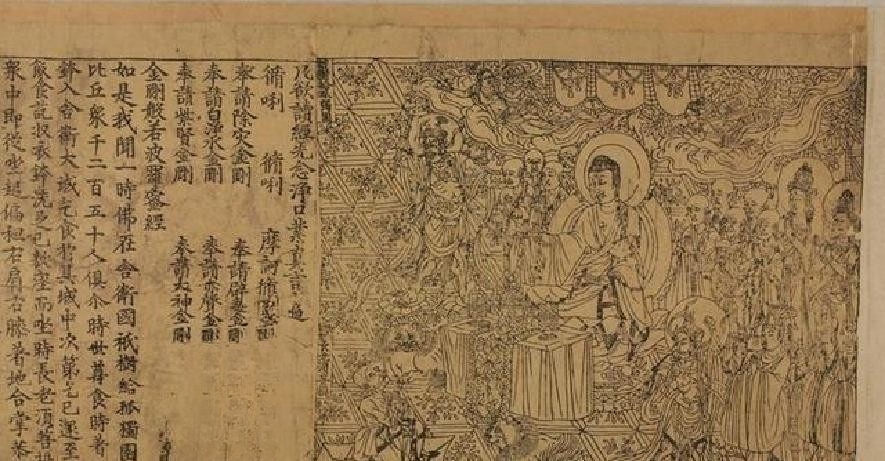 凡欲讀經先念淨口業真言遍
脩唎 脩唎 摩訶脩唎
奉請除災金剛 奉請辟毒金剛
奉請白淨水金剛 奉請赤聲金剛
奉請紫賢金剛 奉請大神金剛
金剛般若波羅蜜經
如是我聞一時佛在舍衛國祇樹給孤獨園
比丘衆千二百五十人俱尒時世尊食時著
鉢入舍衛大城乞食於其城中次第乞已還至
飯食訖收衣鉢洗足已敷座而坐時長老須菩提
衆中即從坐起偏袒右肩右膝著地合掌恭